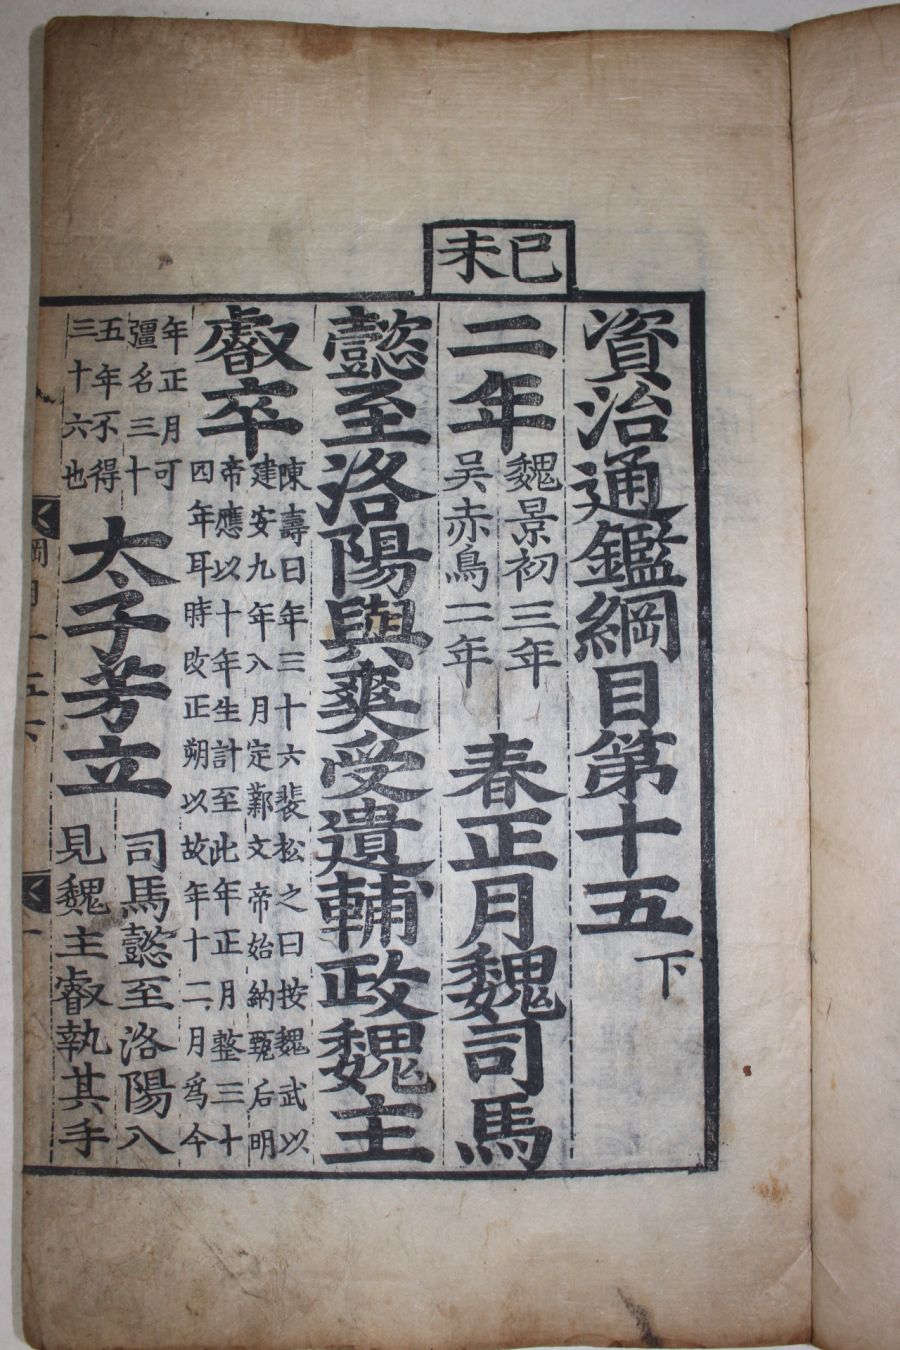 己未
資治通鑑綱目第十五下
二年
魏景初三年
吳赤烏二年
春正月魏司馬
懿至洛陽與爽受遺輔政魏主
叡卒
陳壽曰年三十六裴松之曰按魏武以
建安九年八月定鄴文帝始納甄后明
帝應以十年生計至此年正月整三十
四年耳時改正朔以故年十二月爲今
年正月可
彊名三十
五年不得
三十六也
太子芳立
司馬懿至洛陽入
見魏主叡執其手